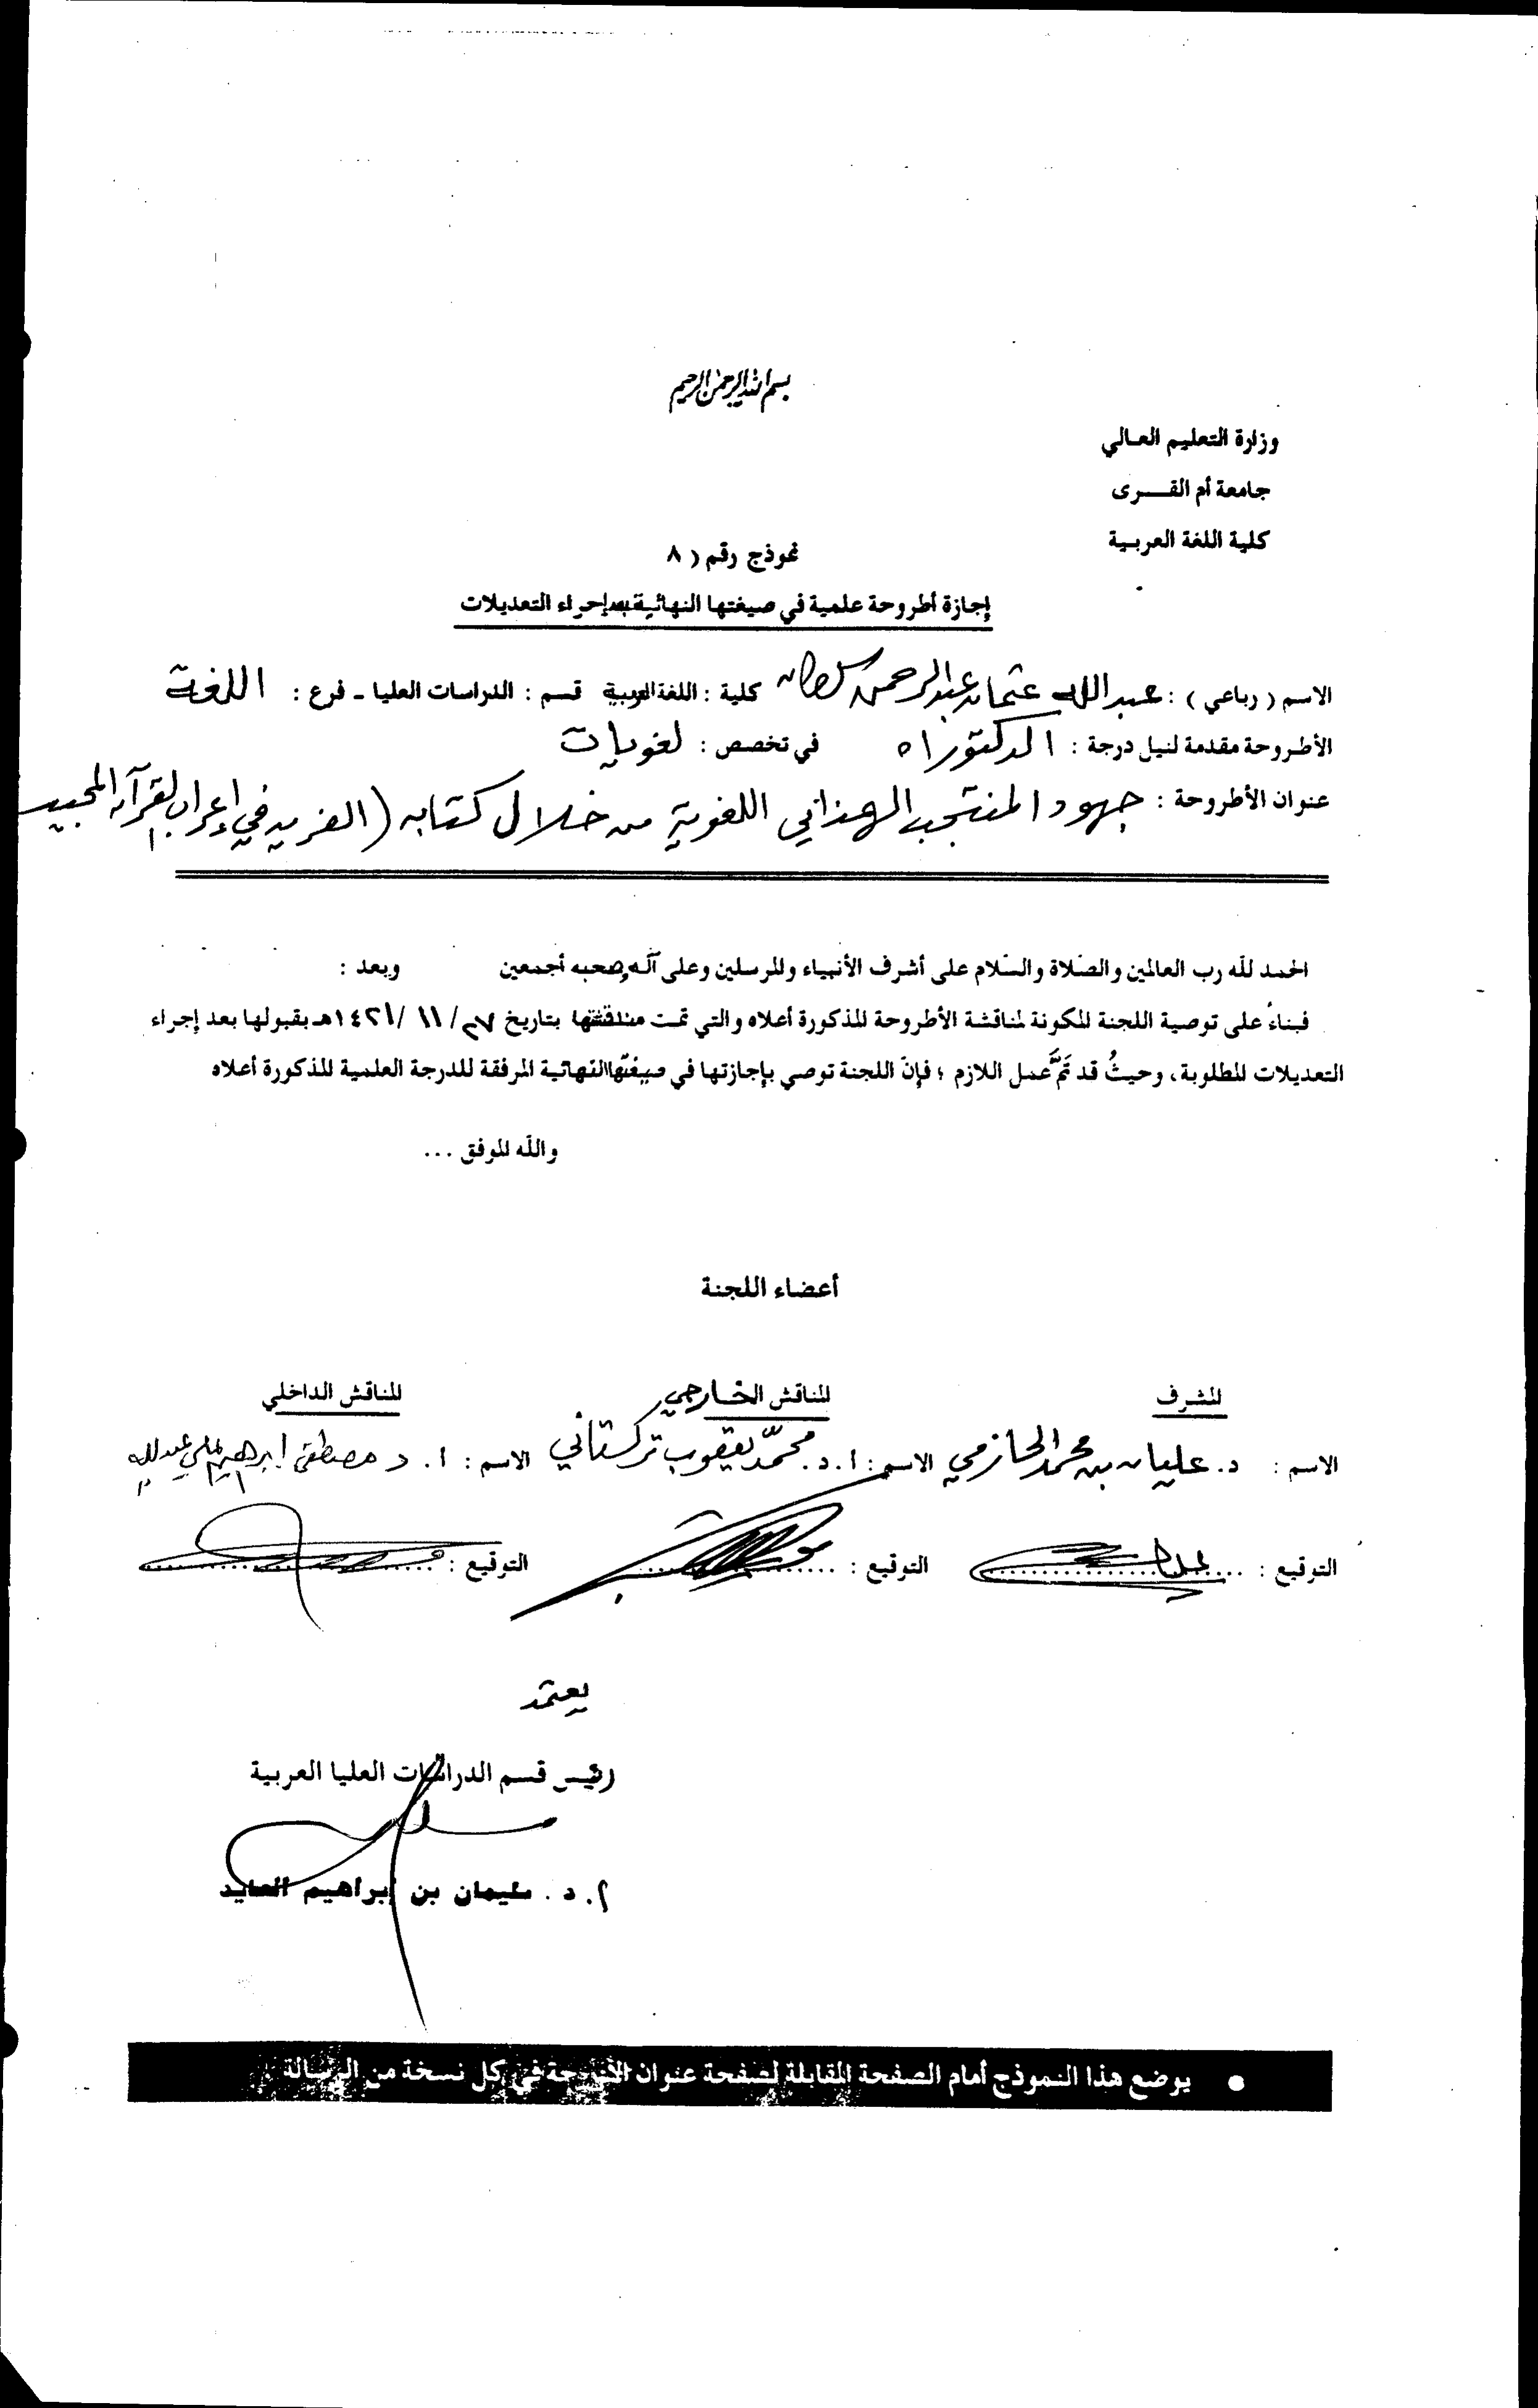 بسم الله الرحمن الرحيم
وزارة التعليم العالي
جامعة أم القــرى
كلية اللغة العربية
نموذج رقم ( ٨
إجازة أطروحة علمية في صيغتها النهائية بعد إجراء التعديلات
الاسم ( رباعي ) : عبدالله عثمان عبدالرحمن كلية : اللغة العربية قسم : الدراسات العليا ـ فرع : اللغة
الأطروحة مقدمة لنيل درجة : الدكتوراه في تخصص : لغويات
عنوان الأطروحة : جهود المنتجب الهمذاني اللغوية من خلال كتابه ( الفريد في إعراب القرآن المجيد
الحمد لله رب العالمين والصّلاة والسّلام على أشرف الأنبياء والمرسلين وعلى آله وصحبه أجمعين وبعد :
فبناءً على توصية اللجنة المكونة لمناقشة الأطروحة المذكورة أعلاه والتي تمت مناقشتها بتاريخ ٢٧/ ١١ /١٤٢١هـ بقبولها بعد إجراء
التعديلات المطلوبة، وحيثُ قد تَمَّ عمل اللازم ؛ فإن اللجنة توصي بإجازتها في صيغتها النهائية المرفقة للدرجة العلمية المذكورة أعلاه
والله الموفق ...
أعضاء اللجنة
المشرف المناقش الخارجي المناقش الداخلي
الاسم : د. عليان بن محمد الحازمي الاسم : ا.د. محمّد يعقوب تركستاني الاسم : ا. د مصطفى ابراهيم علي عبدالله
التوقيع : التوقيع : التوقيع :
يعتمد
رئيس قسم الدراسات العليا العربية
أ. د. سليمان بن إبراهيم العايد
● يوضع هذا النموذج أمام الصفحة المقابلة لصفحة عنوان الأطروحة في كل نسخة من الرسالة